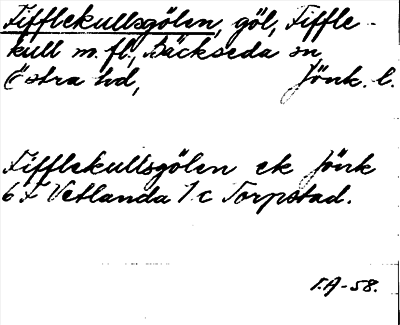 Fifflekullsgölen, göl, Fiffle-
kull m.fl., Bäckseda sn
Östra hd, Jönk. l.
Fifflekullsgölen ek Jönk
6F Vetlanda 1c Torpstad.
T.A-58.